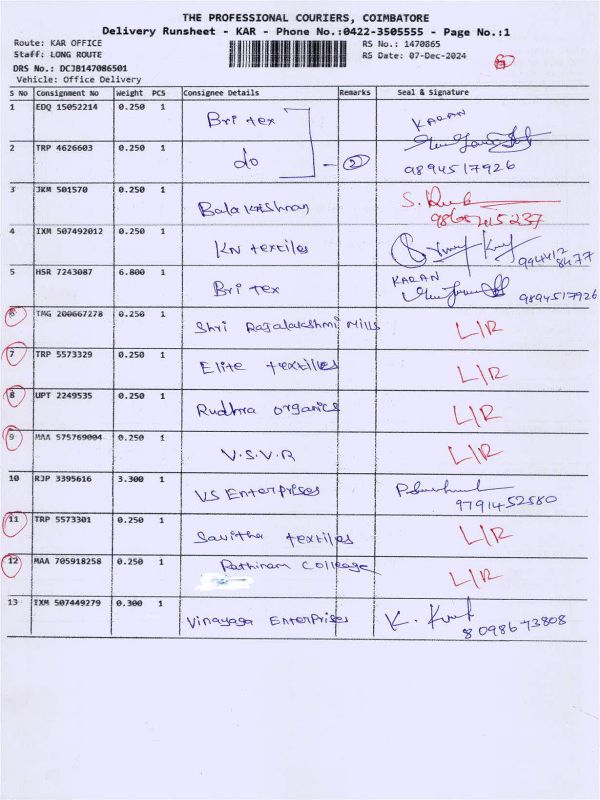 THE PROFESSIONAL COURIERS, COIMBATORE
Delivery Runsheet - KAR - Phone No.:0422-3505555 - Page No.:1
Route: KAR OFFICE RS No.: 1470865
Staff: LONG ROUTE RS Date: 07-Dec-2024
DRS No.: DCJB147086501
Vehicle: Office Delivery
S No Consignment No Weight PCS Consignee Details Remarks Seal & Signature
1 EDQ 15052214 0.250 1 Bri tex KARAN
2 TRP 4626603 0.250 1 do - 2 9894517926
3 JKM 501570 0.250 1 Balakrishnan
4 IXM 507492012 0.250 1 KN textiles 994412 8477
5 HSR 7243087 6.800 1 Bri tex KARAN 9894517926
6 TMG 200667278 0.250 1 Shri Rajalakshmi Mills L/R
7 TRP 5573329 0.250 1 Elite textiles L/R
8 UPT 2249535 0.250 1 Rudhra organics L/R
9 MAA 575769004 0.250 1 V.S.V.R L/R
10 RJP 3395616 3.300 1 VS Enterprises 9791452580
11 TRP 5573301 0.250 1 Savitha textiles L/R
12 MAA 705918258 0.250 1 Colleage L/R
13 IXM 507449279 0.300 1 Vinayaga Enterprises 8098673808